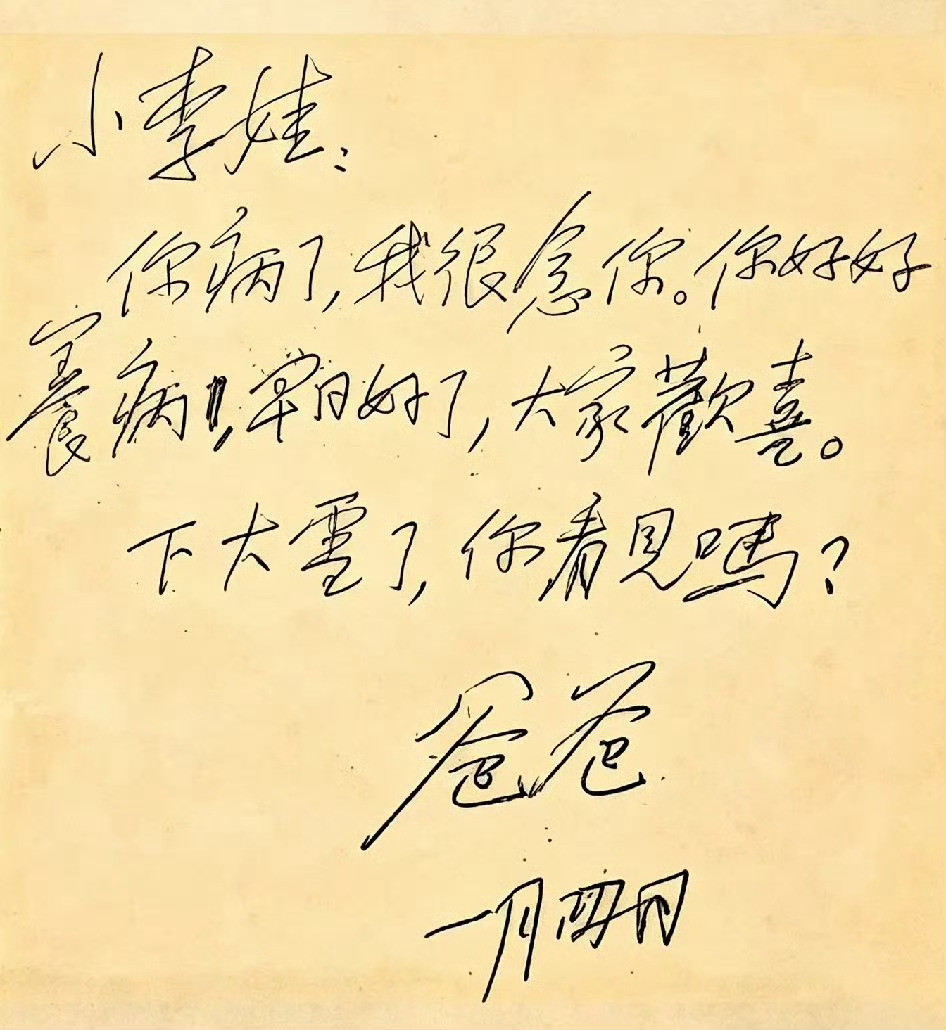 小李娃:
你病了,我很念你。你好好
养病,早日好了,大家歡喜。
下大雪了,你看見嗎?
爸爸
一月四日